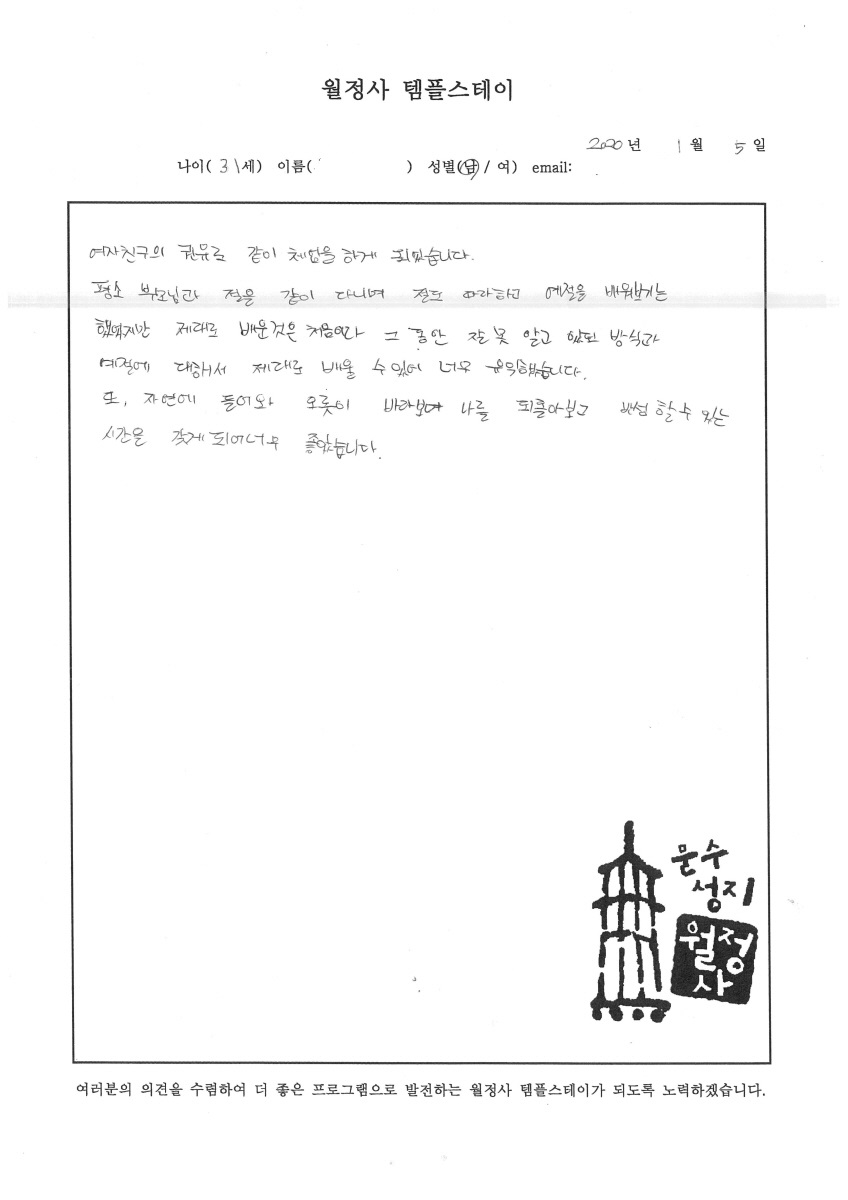 월정사 템플스테이
2020 년 1 월 5 일
나이( 31세) 이름( ) 성별(남 / 여) email:
여자친구의 권유로 같이 체험을 하게 되었습니다.
평소 부모님과 절을 같이 다니며 절도 따라하고 예절을 배워보기는
했었지만 제대로 배운것은 처음이라 그 동안 잘 못 알고 있던 방식과
예절에 대해서 제대로 배울 수 있어 너무 유익했습니다.
또, 자연에 들어와 오롯이 바라보며 나를 되돌아보고 반성 할 수 있는
시간을 갖게 되어 너무 좋았습니다.
문수
성지
월정
사
여러분의 의견을 수렴하여 더 좋은 프로그램으로 발전하는 월정사 템플스테이가 되도록 노력하겠습니다.